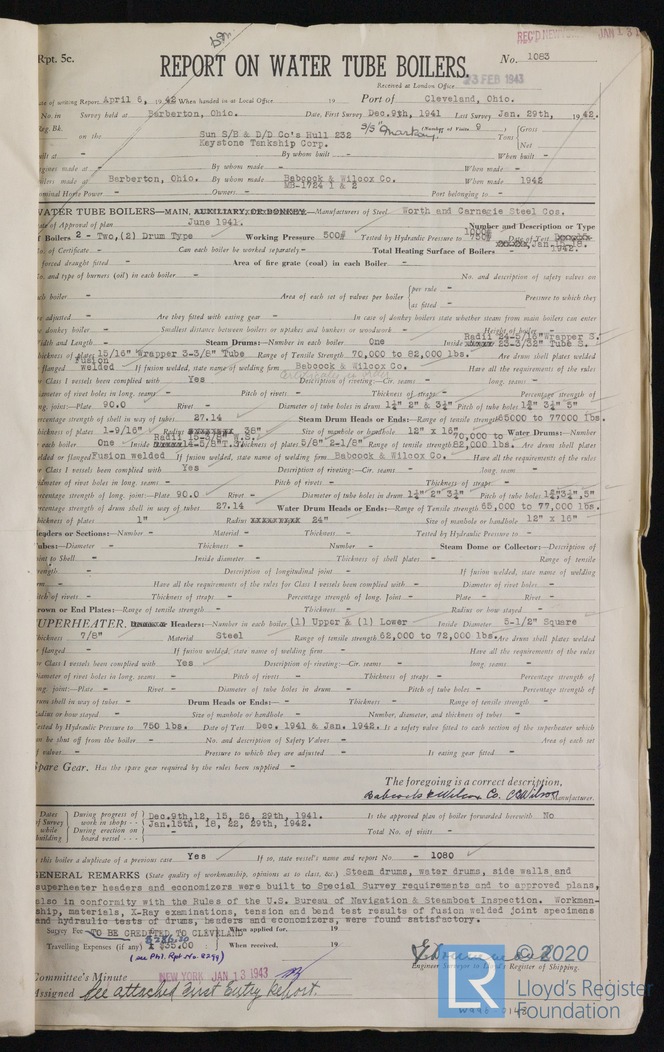 REC'D NEW YORK JAN 13
Rpt. 5c.
REPORT ON WATER TUBE BOILERS.
No. 1083
23 FEB 1943
Received at London Office
of writing Report April 6, 1942 When handed in at Local Office 19 Port of Cleveland, Ohio.
No. in Survey held at Barberton, Ohio. Date, First Survey Dec.9th, 1941 Last Survey Jan. 29th, 1942.
Reg. Bk. (Number of Visits 9 )
on the Sun S/B & D/D Co's Hull 232 S/S "Markay" Tons {Gross
Keystone Tankship Corp. {Net
built at - By whom built - When built -
Engines made at - By whom made - When made -
Boilers made at Barberton, Ohio. By whom made Babcock & Wilcox Co. When made 1942
MB-1724 1 & 2
Nominal Horse Power - Owners - Port belonging to -
WATER TUBE BOILERS—MAIN, AUXILIARY, OR DONKEY.—Manufacturers of Steel Worth and Carnegie Steel Cos.
Date of Approval of plan June 1941. Number and Description or Type
of Boilers 2 - Two,(2) Drum Type Working Pressure 500# Tested by Hydraulic Pressure to 750# Date of Test
No. of Certificate - Can each boiler be worked separately - Total Heating Surface of Boilers - Jan.15-18. 1942.
forced draught fitted - Area of fire grate (coal) in each Boiler -
No. and type of burners (oil) in each boiler - No. and description of safety valves on
each boiler - Area of each set of valves per boiler {per rule - Pressure to which they
{as fitted -
are adjusted - Are they fitted with easing gear - In case of donkey boilers state whether steam from main boilers can enter
the donkey boiler - Smallest distance between boilers or uptakes and bunkers or woodwork - Height of boiler -
Width and Length - Steam Drums:—Number in each boiler One Inside Radii 24-5/16" Wrapper S. 23-3/32" Tube S.
Thickness of plates 15/16" Wrapper 3-3/8" Tube Range of Tensile Strength 70,000 to 82,000 lbs. Are drum shell plates welded
or flanged Fusion welded If fusion welded, state name of welding firm Babcock & Wilcox Co. Have all the requirements of the rules
for Class I vessels been complied with Yes Description of riveting:—Cir. seams - long. seams -
Diameter of rivet holes in long. seams - Pitch of rivets - Thickness of straps - Percentage strength of
long. joint:—Plate 90.0 Rivet - Diameter of tube holes in drum 1¼" 2" & 3¼" Pitch of tube holes 1¾" 3¼" 5"
Percentage strength of shell in way of tubes 27.14 Steam Drum Heads or Ends:—Range of tensile strength 65000 to 77000 lbs.
Thickness of plates 1-9/16" Radius 38" Size of manhole or handhole 12" x 16" Water Drums:—Number
in each boiler One Inside Radii 15-3/8" W.S. 14-5/8" T.S. Thickness of plates 5/8" 2-1/8" Range of tensile strength 70,000 to 82,000 lbs. Are drum shell plates
welded or flanged Fusion welded If fusion welded, state name of welding firm Babcock & Wilcox Co. Have all the requirements of the rules
for Class I vessels been complied with Yes Description of riveting:—Cir. seams - long. seams -
Diameter of rivet holes in long. seams - Pitch of rivets - Thickness of straps -
Percentage strength of long. joint:—Plate 90.0 Rivet - Diameter of tube holes in drum 1¼" 2" 3¼" Pitch of tube holes 1¾",3¼",5"
Percentage strength of drum shell in way of tubes 27.14 Water Drum Heads or Ends:—Range of Tensile strength 65,000 to 77,000 lbs.
Thickness of plates 1" Radius 24" Size of manhole or handhole 12" x 16"
Headers or Sections:—Number - Material - Thickness - Tested by Hydraulic Pressure to -
Tubes:—Diameter - Thickness - Number - Steam Dome or Collector:—Description of
Joint to Shell - Inside diameter - Thickness of shell plates - Range of tensile
strength - Description of longitudinal joint - If fusion welded, state name of welding
firm - Have all the requirements of the rules for Class I vessels been complied with - Diameter of rivet holes -
Pitch of rivets - Thickness of straps - Percentage strength of long. Joint - Plate - Rivet -
Crown or End Plates:—Range of tensile strength - Thickness - Radius or how stayed -
SUPERHEATER. Headers:—Number in each boiler (1) Upper & (1) Lower Inside Diameter 5-1/2" Square
Thickness 7/8" Material Steel Range of tensile strength 62,000 to 72,000 lbs. Are drum shell plates welded
or flanged - If fusion welded, state name of welding firm - Have all the requirements of the rules
for Class I vessels been complied with Yes Description of riveting:—Cir. seams - long. seams -
Diameter of rivet holes in long. seams - Pitch of rivets - Thickness of straps - Percentage strength of
long. joint:—Plate - Rivet - Diameter of tube holes in drum - Pitch of tube holes - Percentage strength of
drum shell in way of tubes - Drum Heads or Ends:— - Thickness - Range of tensile strength -
Radius or how stayed - Size of manhole or handhole - Number, diameter, and thickness of tubes -
Tested by Hydraulic Pressure to 750 lbs. Date of Test Dec. 1941 & Jan. 1942. Is a safety valve fitted to each section of the superheater which
can be shut off from the boiler - No. and description of Safety Valves - Area of each set
of valves - Pressure to which they are adjusted - Is easing gear fitted -
Spare Gear. Has the spare gear required by the rules been supplied -
The foregoing is a correct description,
Babcock & Wilcox Co. Manufacturer.
Dates of Survey while building {During progress of work in shops - - Dec.9th,12, 15, 26, 29th, 1941. Is the approved plan of boiler forwarded herewith No
Jan.15th, 18, 22, 29th, 1942.
{During erection on board vessel - - - - Total No. of visits -
Is this boiler a duplicate of a previous case Yes If so, state vessel's name and report No - 1080
GENERAL REMARKS (State quality of workmanship, opinions as to class, &c.) Steam drums, water drums, side walls and
superheater headers and economizers were built to Special Survey requirements and to approved plans,
also in conformity with the Rules of the U.S. Bureau of Navigation & Steamboat Inspection. Workman-
ship, materials, X-Ray examinations, tension and bend test results of fusion welded joint specimens
and hydraulic tests of drums, headers and economizers, were found satisfactory.
Survey Fee TO BE CREDITED TO CLEVELAND When applied for, 19
Travelling Expenses (if any) $35.00 When received, 19
(see Phl. Rpt No. 8299)
Engineer Surveyor to Lloyd's Register of Shipping.
Committee's Minute NEW YORK JAN 13 1943
Assigned See attached First Entry Report.
© 2020
LR
Lloyd's Register
Foundation